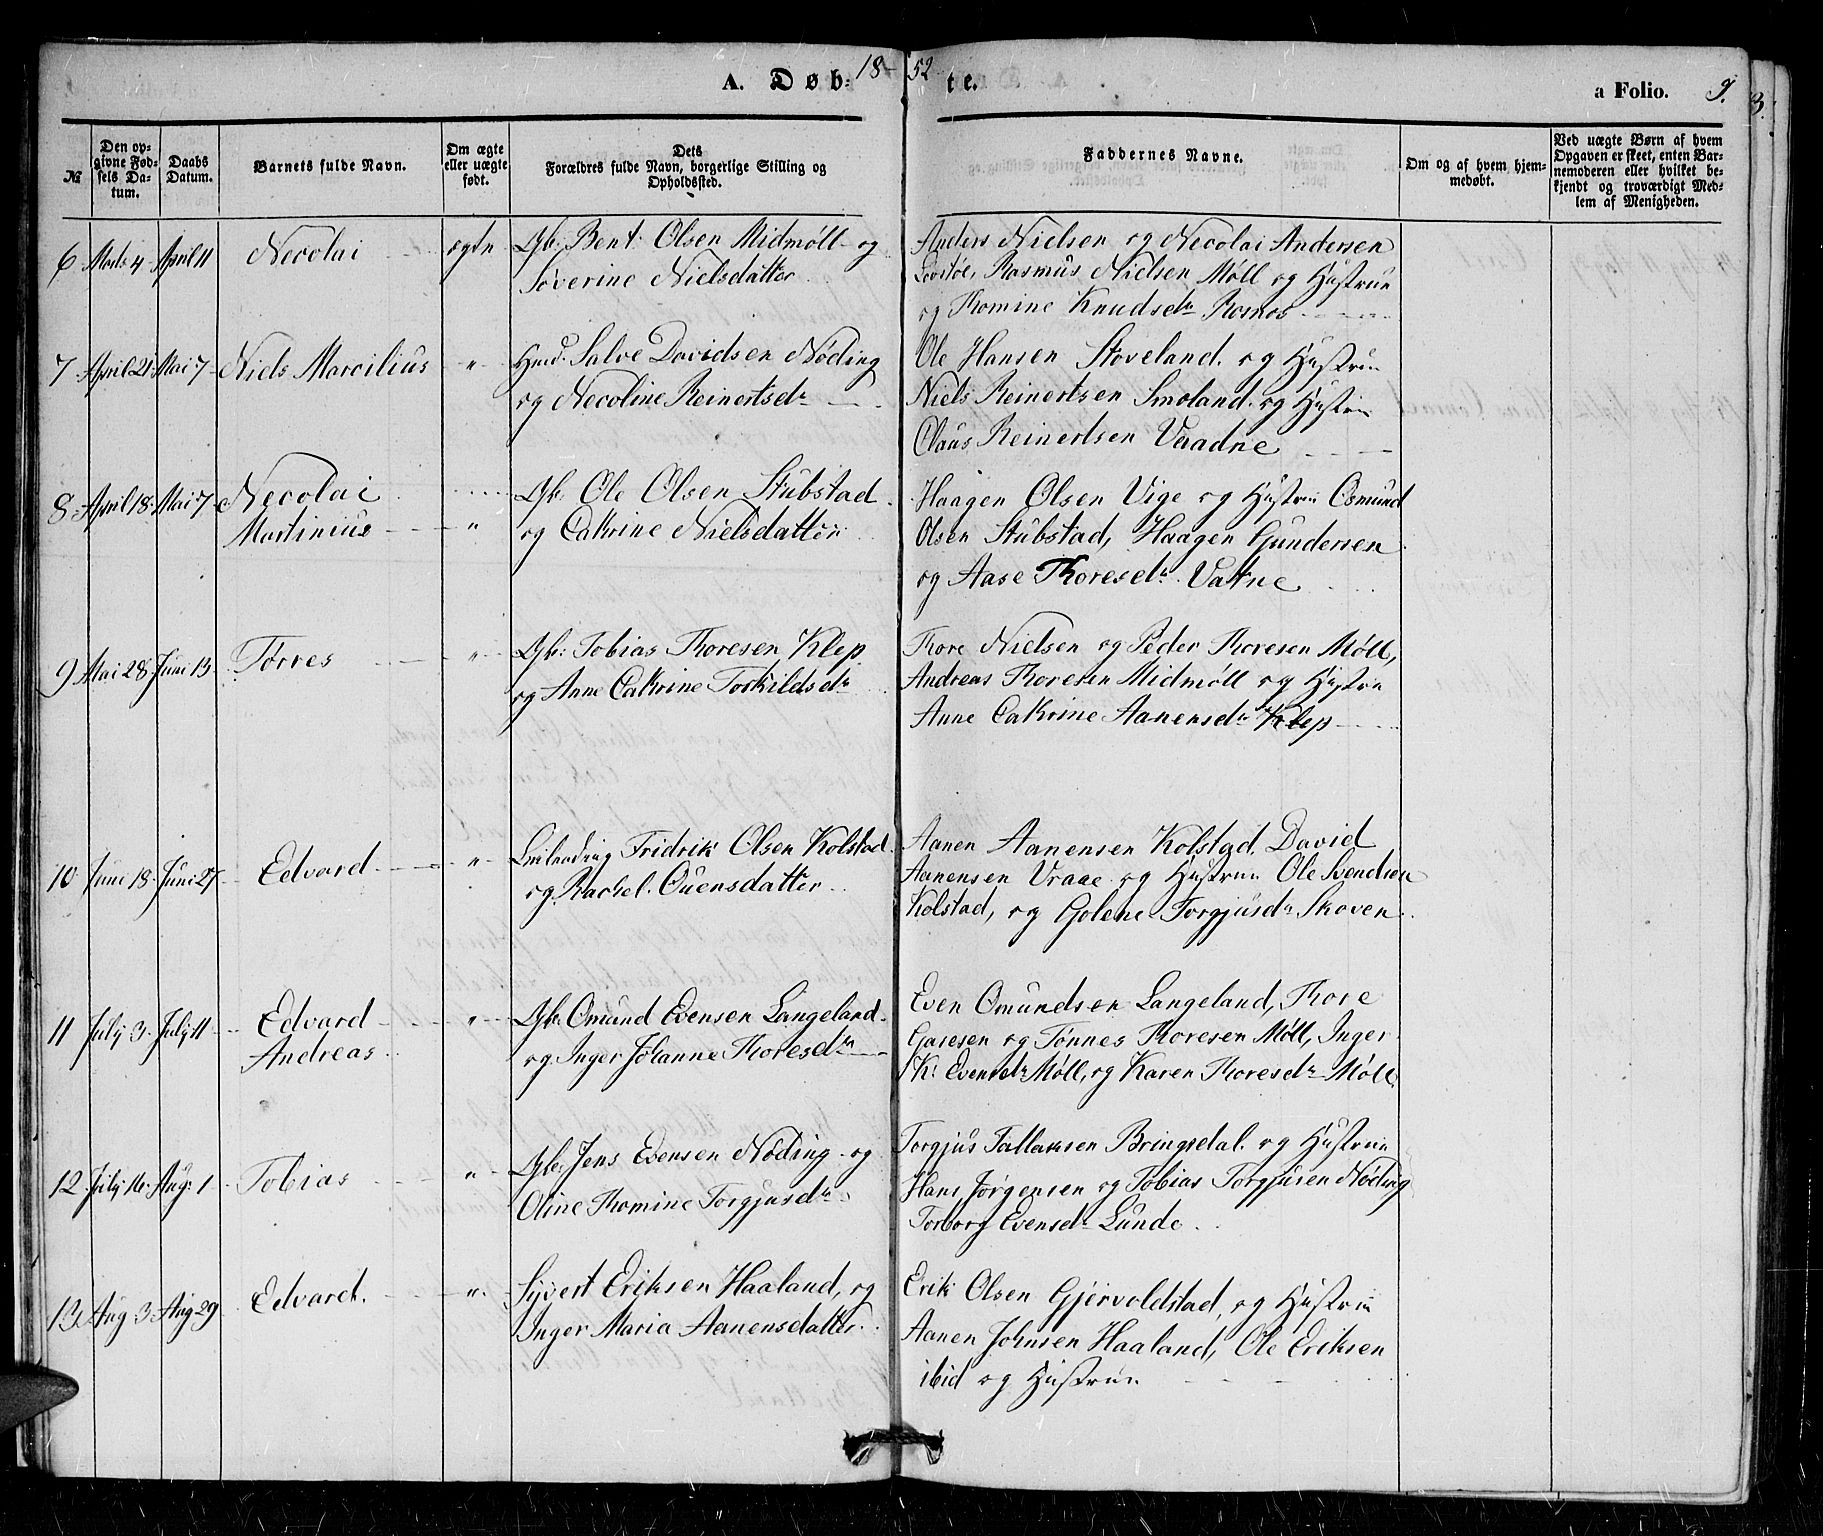 18-52
A. Døb-
te.
a Folio. 9.
№
Den opgivne Fødsels Datum.
Daabs Datum.
Barnets fulde Navn.
Om ægte eller uægte født.
Dets Forældres fulde Navn, borgerlige Stilling og Opholdssted.
Faddernes Navne.
Om og af hvem hjemmedøbt.
Ved uægte Børn af hvem Opgaven er skeet, enten Barnemoderen eller hvilket bekjendt og troværdigt Medlem af Menigheden.
6 Marts 4 April 11 Necolai ægte Gb. Bent Olsen Midmöll og
Söverine Nielsdatter
Anders Nielsen og Necolai Andersen
Rasmus Nielsen Möll og Hustrue
og Thomine Knudsdr Rosnos
7 April 21 Mai 7 Niels Marcilius " Huusmd. Salve Davidsen Nöding
og Necoline Reinertsdr
Ole Hansen Stoveland og Hustrue
Niels Reinertsen Smoland og Hustrue
Claus Reinertsen Vaadne
8 April 18 Mai 7 Necolai
Martinius " Gb. Ole Olsen Stubstad
og Cathrine Nielsdatter
Haagen Olsen Vige og Hustrue Osmund
Olsen Stubstad, Haagen Gundersen
og Aase Thoresdr Vatne
9 Mai 28 Juni 13 Torres " Gb: Tobias Thoresen Klep
og Anne Cathrine Torkildsdr
Thore Nielsen og Peder Thoresen Möll,
Andreas Thoresen Midmöll og Hustrue
Anne Cathrine Aanensdr Klep
10 Juni 18 Juni 27 Edvard " Leilænding Fridrik Olsen Kolstad
og Rachel Ouensdatter
Aanen Aanensen Kolstad, David
Aanensen Vraae og Hustrue Ole Svendsen
Kolstad, og Golene Torgjusdr Skoven
11 July 3 July 11 Edvard
Andreas " Gb. Omund Evensen Langeland
og Inger Johanne Thoresdr
Even Omundsen Langeland, Thore
Garesen og Tönnes Thoresen Möll, Inger
K: Evensdr Möll, og Karen Thoresdr Möll
12 July 16 Aug: 1 Tobias " Gb: Jens Evensen Nöding og
Oline Thomine Torgjusdr
Torgjus Tallaksen Bringsdal og Hustrue
Hans Jörgensen og Tobias Torgjusen Nöding
Torborg Evensdr Lunde
13 Aug 3 Aug 29 Edvard " Syvert Eriksen Haaland, og
Inger Maria Aanensdatter
Erik Olsen Gjervoldstad, og Hustrue
Aanen Johnsen Haaland, Ole Eriksen
ibid og Hustrue